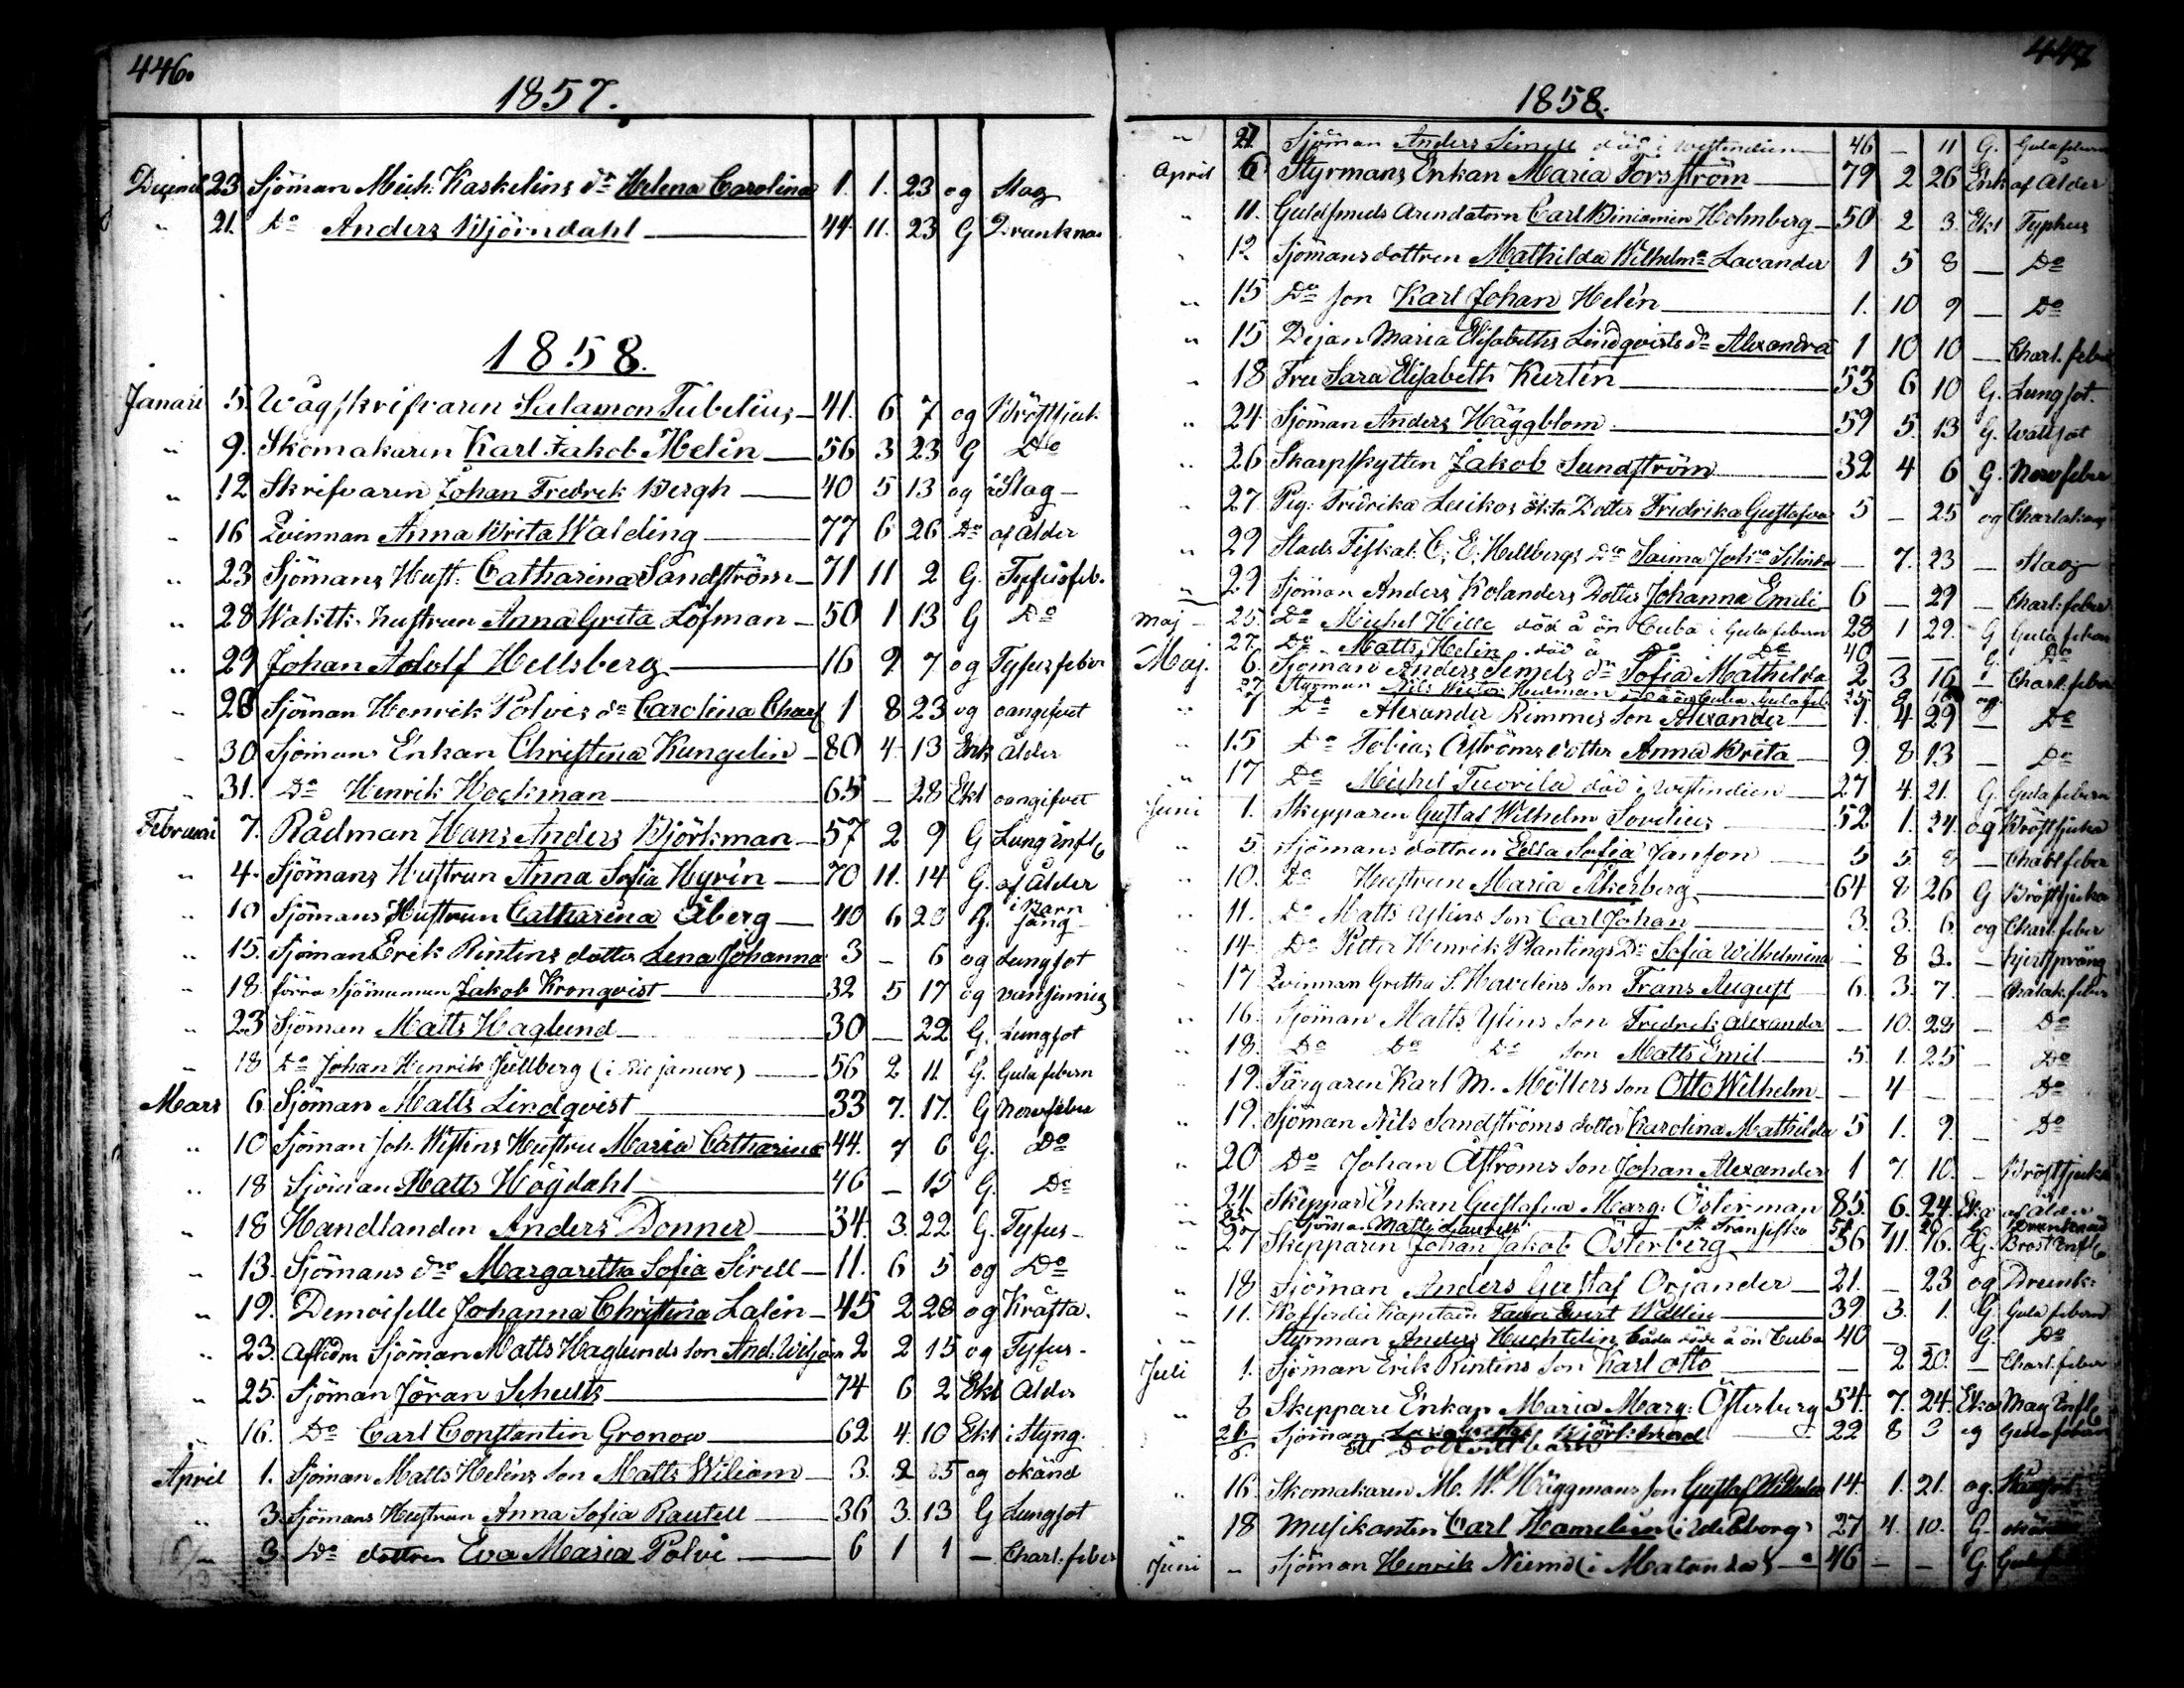 446.
1857.
Decemb 23 Sjöman Mich: Kaskelins dr Helena Carolina 1. 1. 23 og Slag
" 21. Do Anders Björndahl 44 11. 23 G Drunknad
1858.
Januari 5. Wågskrifvaren Salamon Tubelius 41. 6 7 og Bröstsjuk.
" 9. Skomakaren Karl Jakob Melin 56 3 23 G Do
" 12 Skrifvaren Johan Fredrek Bergh 40 5 13 og Slag
" 16 Qvinnan Anna Brita Walding 77 6 26 Do af ålder
" 23 Sjömans Hust: Catharina Sandström 71 11 2 G. Tyfusfeb.
" 28 Waktk. hustrun Anna Greta Löfman 50 1 13 G Do
" 29 Johan Adolf Hellsberg 16 9 7 og Tyfusfeber
" 28 Sjöman Henrik Polvis dr Carolina Charl 1 8 23 og oangifvet
" 30 Sjömans Enkan Christina Kungelin 80 4 13 Enk ålder
" 31. Do Henrik Hockman 65 – 28 Ekl oangifvet
Februari 7. Rådman Hans Anders Björkman 57 2 9 G Lung infl
" 4. Sjömans Hustrun Anna Sofia Hyrin 70 11. 14 G. af ålder
" 10 Sjömans Hustrun Catharina Åberg 40 6 20 G. i Barn säng
" 15. Sjöman Erik Rintins dotter Lena Johanna 3 – 6 og Lungsot
" 18. förra Sjömannen Jakob Kronqvist 32 5 17 og vansinnig
" 23 Sjöman Matts Haglund 30 – 22 G. Lungsot
" 18 Do Johan Henrik Jullberg (i Rio januro) 56 2 11 G. Gula febern
Mars 6 Sjöman Matts Lindqvist 33 7. 17. G Nervfeber
" 10 Sjöman Joh. Westins Hustru Maria Catharina 44. 7 6 G. Do
" 18 Sjöman Matts Högdahl 46 – 15 G. Do
" 18 Handlanden Anders Donner 34 3. 22. G. Tyfus
" 13. Sjömans dr Margaretha Sofia Sirell 11. 6 5 og Do
" 19. Demoiselle Johanna Christina Lalin 45 2 28 og Kräfta.
" 23. Afledne Sjöman Matts Haglunds son And: Viljam 2 2 15 og Tyfus
" 25. Sjöman Jöran Schults 74 6 2 Ekl Ålder
" 16. Do Carl Constantin Gronow 62 4. 10 Ekl i Styng.
April 1. Sjöman Matts Heléns son Matts Wiliam 3. 2 25 og okänd
" 3. Sjömans Hustrun Anna Sofia Rautell 36 3. 13 G Lungsot
" 3. Do dottren Eva Maria Polvi 6 1 1 – Charl. feber
447
1858.
" 21. Sjöman Anders Simell död i Westindien 46 – 11 G. Gula febern
April 6 Styrmans Enkan Maria Forsström 79 2 26 Enk af Ålder
" 11. Guldsmeds Arendatorn Carl Biniamin Holmberg 50 2 3. Ekl Typhus
" 12 Sjömans dottren Mathilda Wilhelma Lavander 1 5 8 – Do
" 15 Do son Karl Johan Helén 1. 10 9 – Do
" 15 Pejan Maria Elisabeths Lindqvists dr Alexandra 1 10 10 – Charl. feber
" 18 Fru Sara Elisabeth Kurtén 53 6 10 G. Lungsot.
" 24 Sjöman Anders Häggblom 59 5. 13 G. Wattsot
" 26 Skarpskytten Jakob Sundström 32 4 6 G. Nervfeber
" 27 Pig: Fredrika Luikos oäkta Dotter Fredrika Gustafva 5 – 25 og
" 29 Stads Fiskal: C. E: Hellbergs Dr Saima – 7. 23 – Slag
" 29 Sjöman Anders Kolanders Dotter Johanna Emili 6 – 29 – Charl. feber
Maj 25. Do Michel Hille död å ön Cuba i Gula febern 28 1 29. G Gula febern
27. Do Matts Helin död å Do Do 40 – – G. Do
Maj. 6. Sjöman Anders Semels dr Sofia Mathilda 2 3 16 – Charl. feber
27 Styrman Nils Victor död å ön Cuba Gula feb 25. og
" 7 Do Alexander Rimmis son Alexander 1. 4 29 – Do
" 15 Do Tobias Åströms dotter Anna Brita 9. 8 13 – Do
" 17 Do Michel Tuorila död i Westindien 27 4. 21. G. Gula febern
Juni 1. Skepparen Gustaf Wilhelm Sovelius 52 1. 24. og Bröstsjuka
" 5. Sjömans dottren Edla Sofia Janson 5 5 8 – Charl feber
" 10. Do Hustrun Maria Åkerberg 64 8 26 G Bröstsjuka
" 11. Do Matts Ylins Son Carl Johan 3. 3. 6. og Charl. feber
" 14. Do Petter Henrik Plantings Dr Sofia Wilhelmina – 8 3. –
" 17 Qvinnan Gretha S. Havelins son Frans August 6. 3. 7. – Charlak. feber
" 16. Sjöman Matts Ylins Son Fredrek Alexander – 10. 28 – Do
" 18. Do Do Do son Matts Emil 5. 1. 25 – Do
" 19. Färgaren Karl M. Möllers son Otto Wilhelm – 4 – – Do
" 19. Sjöman Nils Sandströms dotter Karolina Mathilda 5 1. 9. – Do
" 20 Do Johan Åströms son Johan Alexander 1 7. 10. – Bröstsjuka
" 24 Skeppar Enkan Gustafva Marg: Österman 85. 6. 24. Eka af Ålder
Sjöma. Matts Laurell St Fransesko G. Drunknad
" 27 Skepparen Johan Jakob Österberg 56 11. 16. G. Bröst Infl
" 18 Sjöman Anders Gustaf Orjander 21. – 23 og Drunk:
" 11. Kofferdie Kapitain Evert Wallin 39 3. 1. G Gula febern
" Styrman Anders Huchtelin båda död å ön Cuba 40 – – G. Do
Juli 1. Sjöman Erik Rintins Son Karl Otto – 2 20. – Charl. feber
" 8 Skeppare Enkan Maria Marg: Österberg 54 7. 24. Eka Mag Infl
26 Sjöman Björkbrad 22 8 3 og Gula febern
8. Ett
" 16. Skomakaren M. W. Häggmans son Gustaf Wilhelm 14 1. 21. og.
18 Musikanten Carl Hamelin i Uleåborg 27 4. 10. G.
Juni " Sjöman Henrik Niemi (i Matandas) 46 – – G. Gula